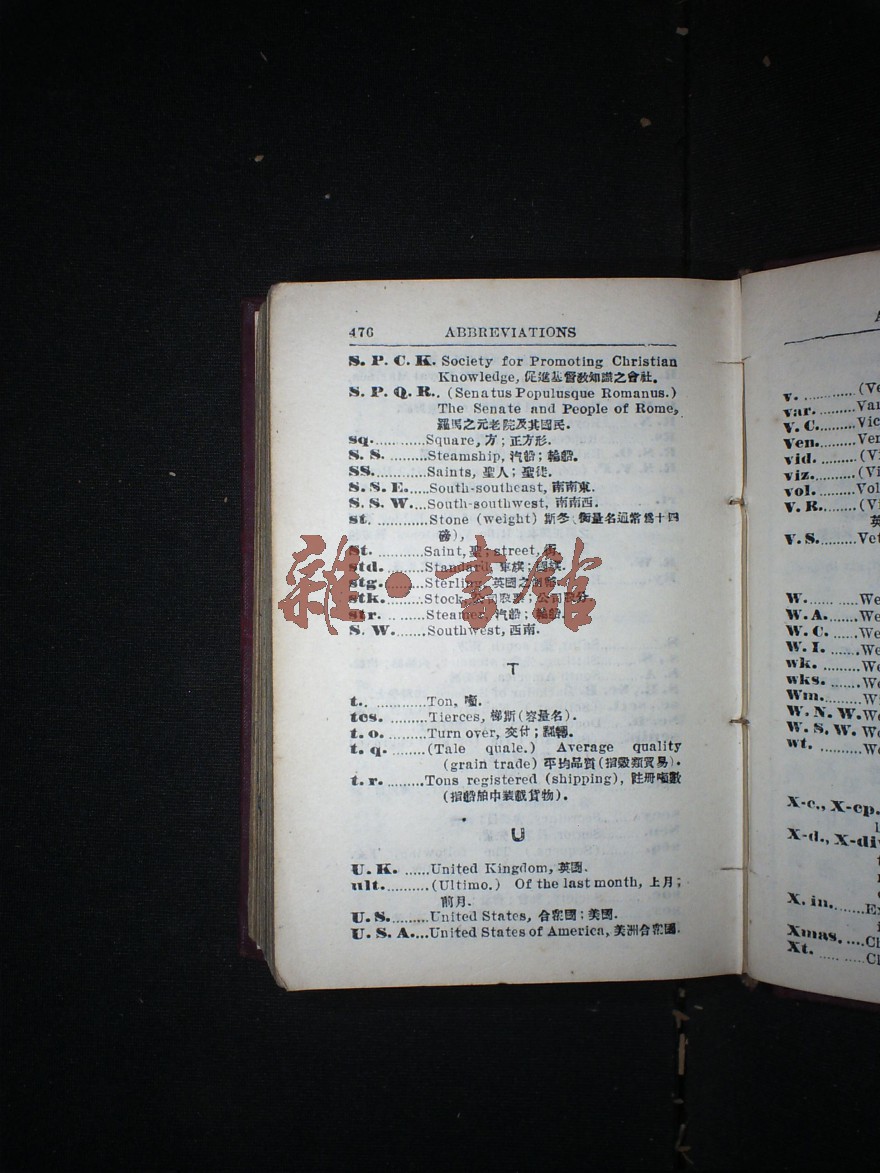 476 ABBREVIATIONS
S. P. C. K. Society for Promoting Christian
Knowledge, 促進基督教知識之會社.
S. P. Q. R.. (Senatus Populusque Romanus.)
The Senate and People of Rome,
羅馬之元老院及其國民.
sq...........Square, 方; 正方形.
S. S. ........Steamship, 汽船; 輪船.
SS...........Saints, 聖人; 聖徒.
S. S. E.....South-southeast, 南南東.
S. S. W....South-southwest, 南南西.
st. ...........Stone (weight) 斯冬, 衡量名通常爲十四
磅),
St. ...........Saint, 聖; street, 街.
std. .........Standard,
stg. .........Sterling, 英國之
stk. .........Stock, 公司股票; 公司股分.
str. .. ......Steamer, 汽船; 輪船.
S. W.......Southwest, 西南.
T
t.. ...........Ton, 噸.
tcs. .........Tierces, 梯斯 (容量名).
t. o. ........Turn over, 交付; 翻轉.
t. q. .......(Tale quale.) Average quality
(grain trade) 平均品質 (指穀類貿易).
t. r. ........Tons registered (shipping), 註册噸數
(指船舶中裝載貨物).
U
U. K. ......United Kingdom, 英國.
ult..........(Ultimo.) Of the last month, 上月;
前月.
U. S.........United States, 合衆國; 美國.
U. S. A....United States of America, 美洲合衆國.
v. ............(Ve
var. .........Var
V. C.........Vic
Ven. .........Ven
vid. .........(Vi
viz. .........(Vi
vol. .........Vol
V. R........(Vi
英
V. S........Vet
W. ...... .....We
W. A.......We
W. C. ......We
W. I. .......We
wk. .........We
wks. .......We
Wm. .......Wi
W. N. W. We
W. S. W. We
wt. .........We
X-c., X-cp.
X-d., X-di
X. in. ......Ex
Xmas. ....Ch
Xt. ..........Ch
雜·書館